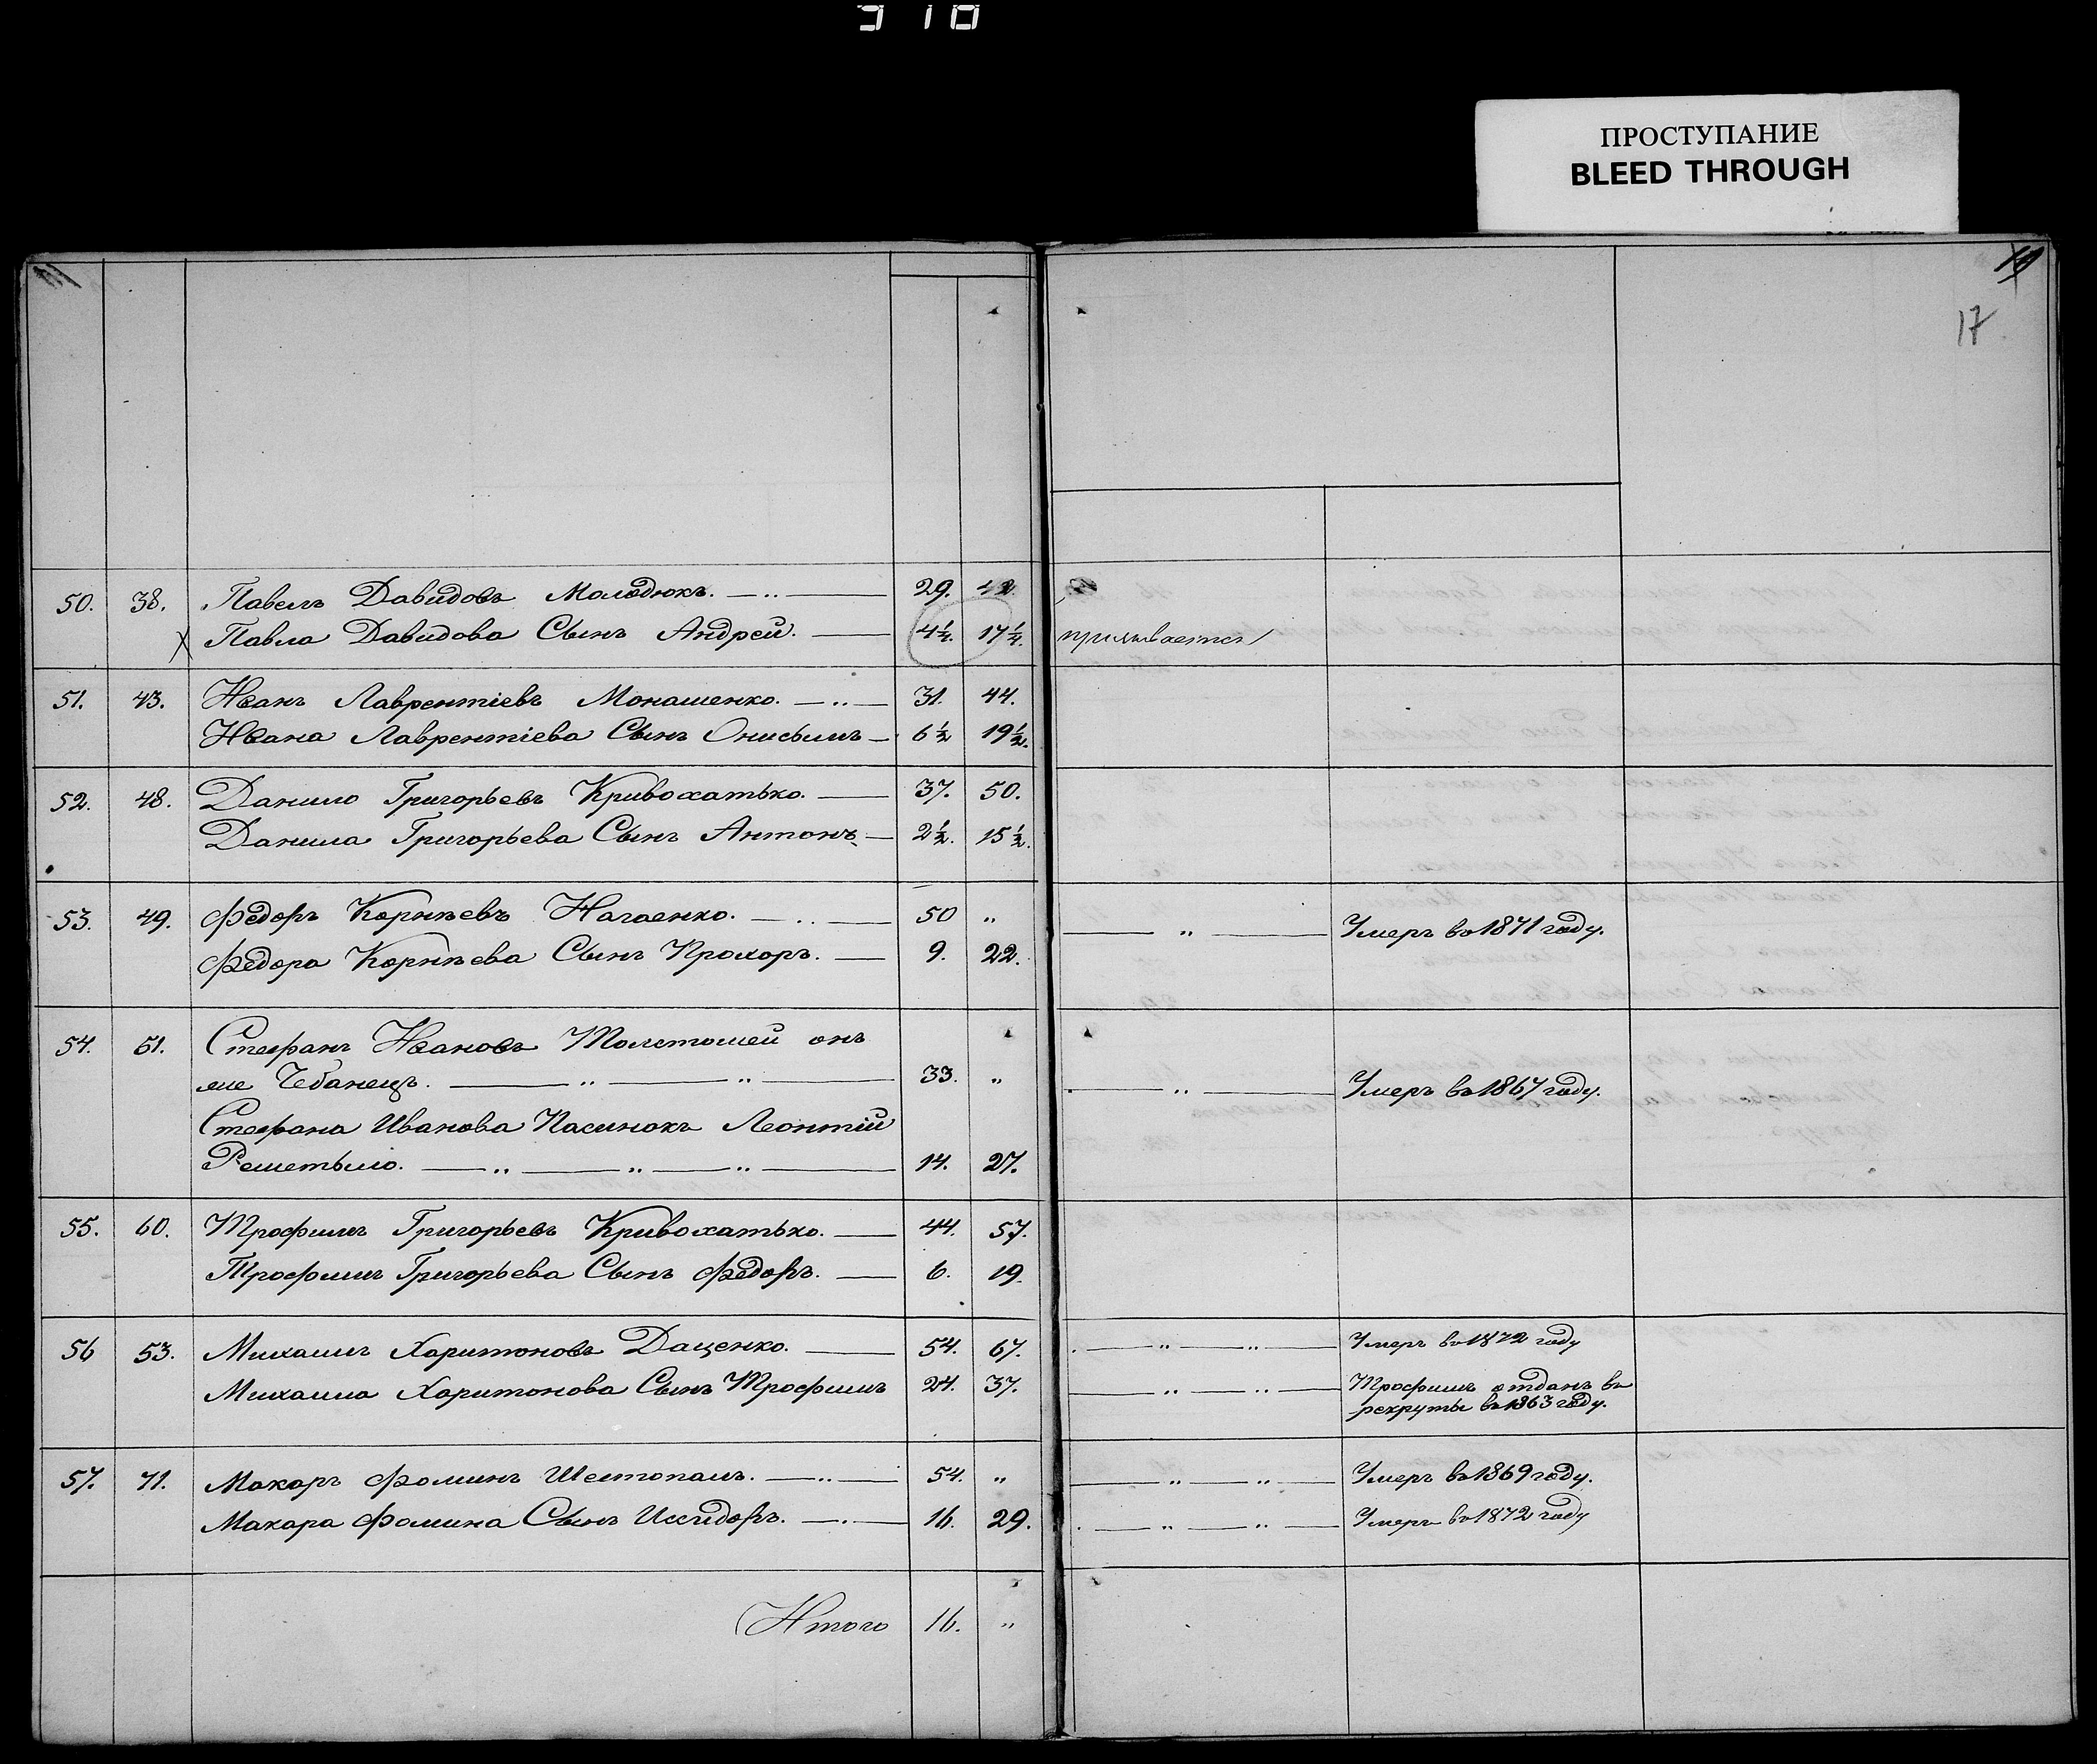 ПРОСТУПАНИЕ
BLEED THROUGH
17
50. 38. Павелъ Давидовъ Молодюкъ. 29. 42.
Х Павла Давидова Сынъ Андрей. 4¼. 17¼. призывается
51. 43. Иванъ Лаврентіевъ Монашенко. 31. 44.
Ивана Лаврентіева Сынъ Онисымъ 6½ 19½.
52. 48. Данило Григорьевъ Кривохатько. 37. 50.
Данила Григорьева Сынъ Антонъ 2½. 15½.
53. 49. Федоръ Корнѣевъ Нагаенко. 50 " — " — Умеръ въ 1871 году.
Федора Корнѣева Сынъ Прохоръ. 9. 22.
54. 51. Стефанъ Ивановъ Толстошей онъ
же Чебанецъ. — " — " — 33. " — " — Умеръ въ 1867 году.
Стефана Иванова Пасинокъ Леонтій
Решетыло. — " — " — " — 14. 27.
55. 60. Трофимъ Григорьевъ Кривохатько. 44. 57.
Трофима Григорьева Сынъ Федоръ. 6. 19.
56 53. Михаилъ Харитоновъ Даценко. 54. 67. — " — " — Умеръ въ 1872 году
Михаила Харитонова Сынъ Трофимъ 24. 37. — " — " — Трофимъ отданъ въ
рекруты въ 1863 году.
57. 71. Макаръ Фоминъ Шестопалъ. 54. " — " — " — Умеръ въ 1869 году.
Макара Фомина Сынъ Исидоръ. 16. 29. — " — " — Умеръ въ 1872 году
Итого 16. "